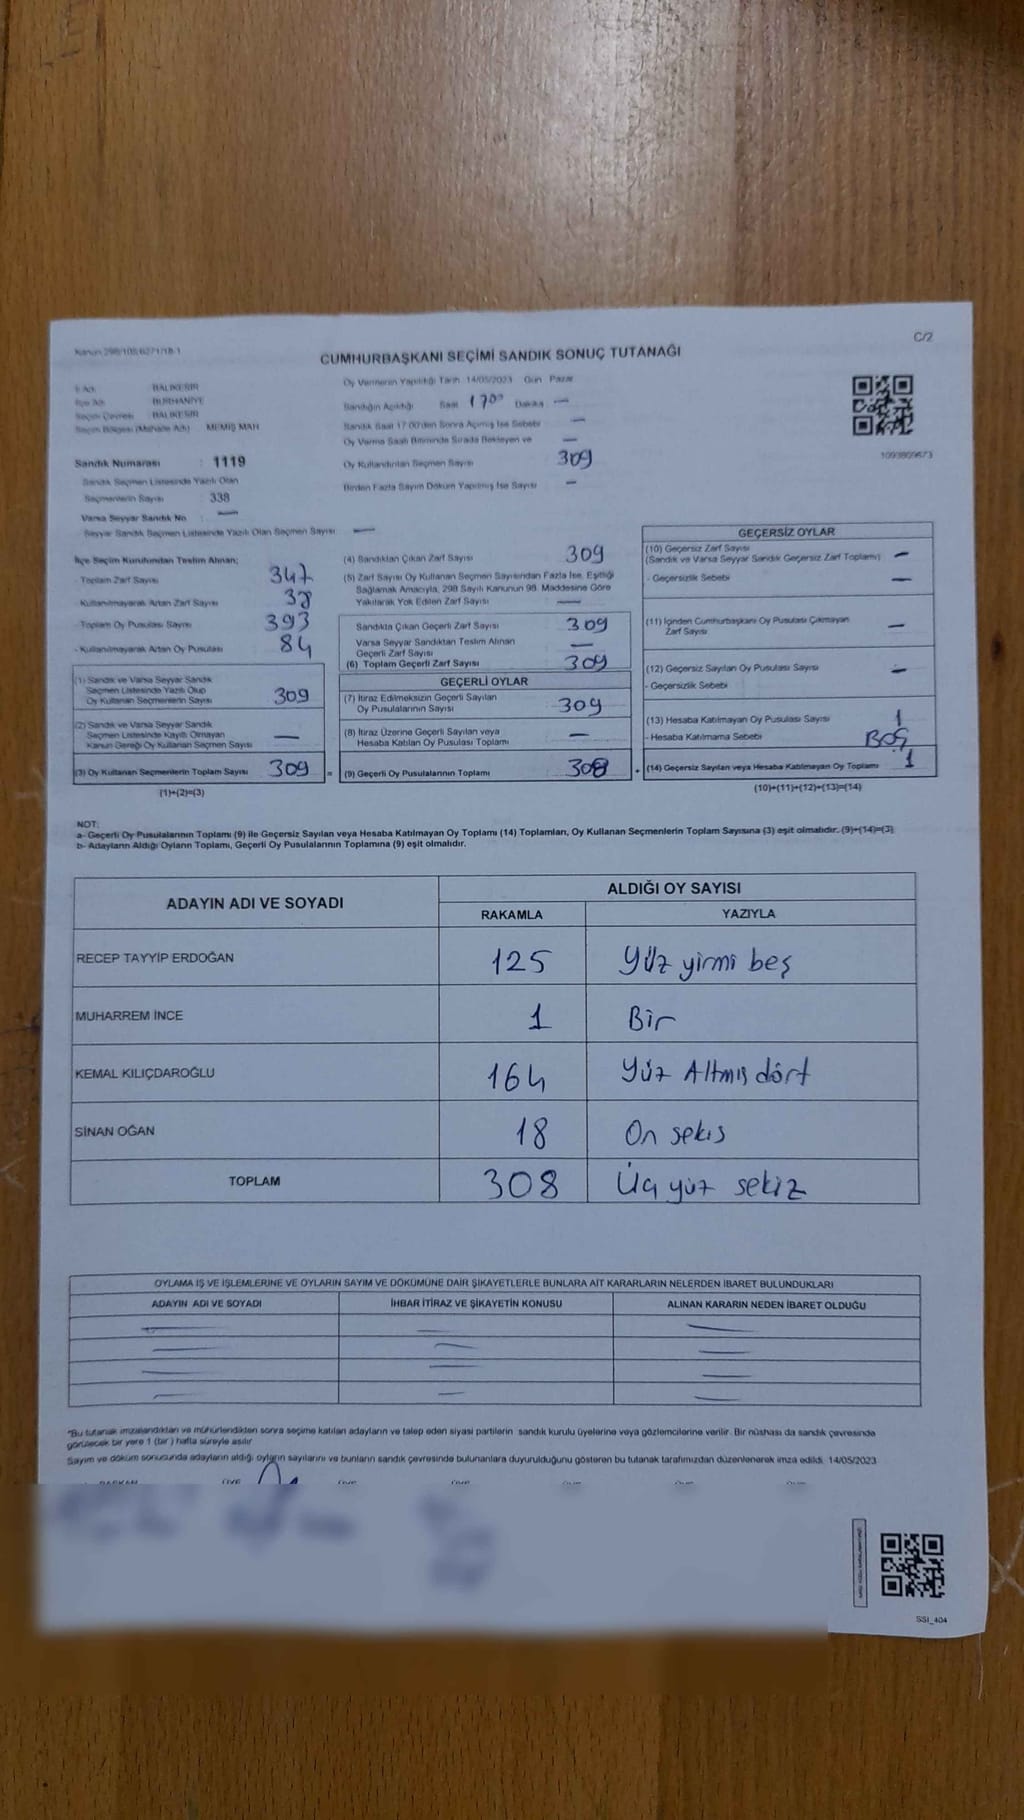 Kanun 298/105/6271/18-1
C/2
CUMHURBAŞKANI SEÇİMİ SANDIK SONUÇ TUTANAĞI
İl Adı BALIKESİR
İlçe Adı BURHANİYE
Seçim Çevresi BALIKESİR
Seçim Bölgesi (Mahalle Adı) MEMİŞ MAH
Sandık Numarası : 1119
Sandık Seçmen Listesinde Yazılı Olan
Seçmenlerin Sayısı 338
Varsa Seyyar Sandık No : —
Seyyar Sandık Seçmen Listesinde Yazılı Olan Seçmen Sayısı —
Oy Vermenin Yapıldığı Tarih 14/05/2023 Gün Pazar
Sandığın Açıldığı Saat 17⁰⁰ Dakika —
Sandık Saat 17.00'den Sonra Açılmış İse Sebebi —
Oy Verme Saati Bitiminde Sırada Bekleyen ve —
Oy Kullandırılan Seçmen Sayısı 309
Birden Fazla Sayım Döküm Yapılmış İse Sayısı —
1093809673
İlçe Seçim Kurulundan Teslim Alınan;
- Toplam Zarf Sayısı 347
- Kullanılmayarak Artan Zarf Sayısı 38
- Toplam Oy Pusulası Sayısı 393
- Kullanılmayarak Artan Oy Pusulası 84
(1) Sandık ve Varsa Seyyar Sandık
Seçmen Listesinde Yazılı Olup
Oy Kullanan Seçmenlerin Sayısı 309
(2) Sandık ve Varsa Seyyar Sandık
Seçmen Listesinde Kayıtlı Olmayan
Kanun Gereği Oy Kullanan Seçmen Sayısı —
(3) Oy Kullanan Seçmenlerin Toplam Sayısı 309 =
(1)+(2)=(3)
(4) Sandıktan Çıkan Zarf Sayısı 309
(5) Zarf Sayısı Oy Kullanan Seçmen Sayısından Fazla İse, Eşitliği
Sağlamak Amacıyla, 298 Sayılı Kanunun 98. Maddesine Göre
Yakılarak Yok Edilen Zarf Sayısı —
Sandıkta Çıkan Geçerli Zarf Sayısı 309
Varsa Seyyar Sandıktan Teslim Alınan
Geçerli Zarf Sayısı —
(6) Toplam Geçerli Zarf Sayısı 309
GEÇERLİ OYLAR
(7) İtiraz Edilmeksizin Geçerli Sayılan
Oy Pusulalarının Sayısı 309
(8) İtiraz Üzerine Geçerli Sayılan veya
Hesaba Katılan Oy Pusulası Toplamı —
(9) Geçerli Oy Pusulalarının Toplamı 308 +
GEÇERSİZ OYLAR
(10) Geçersiz Zarf Sayısı
(Sandık ve Varsa Seyyar Sandık Geçersiz Zarf Toplamı) —
- Geçersizlik Sebebi —
(11) İçinden Cumhurbaşkanı Oy Pusulası Çıkmayan
Zarf Sayısı —
(12) Geçersiz Sayılan Oy Pusulası Sayısı —
- Geçersizlik Sebebi
(13) Hesaba Katılmayan Oy Pusulası Sayısı 1
- Hesaba Katılmama Sebebi BOŞ
(14) Geçersiz Sayılan veya Hesaba Katılmayan Oy Toplamı 1
(10)+(11)+(12)+(13)=(14)
NOT:
a- Geçerli Oy Pusulalarının Toplamı (9) ile Geçersiz Sayılan veya Hesaba Katılmayan Oy Toplamı (14) Toplamları, Oy Kullanan Seçmenlerin Toplam Sayısına (3) eşit olmalıdır. (9)+(14)=(3)
b- Adayların Aldığı Oyların Toplamı, Geçerli Oy Pusulalarının Toplamına (9) eşit olmalıdır.
ADAYIN ADI VE SOYADI ALDIĞI OY SAYISI
RAKAMLA YAZIYLA
RECEP TAYYİP ERDOĞAN 125 Yüz yirmi beş
MUHARREM İNCE 1 Bir
KEMAL KILIÇDAROĞLU 164 Yüz Altmış dört
SİNAN OĞAN 18 On sekis
TOPLAM 308 Üç yüz sekiz
OYLAMA İŞ VE İŞLEMLERİNE VE OYLARIN SAYIM VE DÖKÜMÜNE DAİR ŞİKAYETLERLE BUNLARA AİT KARARLARIN NELERDEN İBARET BULUNDUKLARI
ADAYIN ADI VE SOYADI İHBAR İTİRAZ VE ŞİKAYETİN KONUSU ALINAN KARARIN NEDEN İBARET OLDUĞU
— — —
— — —
— — —
— — —
*Bu tutanak imzalandıktan ve mühürlendikten sonra seçime katılan adayların ve talep eden siyasi partilerin sandık kurulu üyelerine veya gözlemcilerine verilir. Bir nüshası da sandık çevresinde
görülecek bir yere 1 (bir) hafta süreyle asılır
Sayım ve döküm sonucunda adayların aldığı oyların sayılarını ve bunların sandık çevresinde bulunanlara duyurulduğunu gösteren bu tutanak tarafımızdan düzenlenerek imza edildi. 14/05/2023
SSI_404